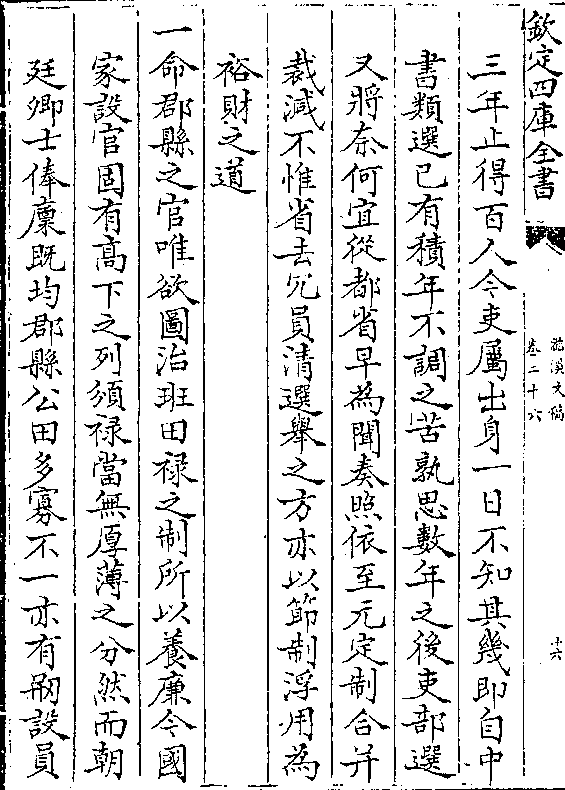 欽定四庫全書
滋溪文稿
卷二十六
十六
三年止得百人今吏屬出身一日不知其幾即自中
書類選已有積年不調之苦孰思數年之後吏部選
又將奈何宜從都省早為聞奏照依至元定制合并
裁減不惟省去冗員清選舉之方亦以節制浮用為
裕財之道
一命郡縣之官唯欲圖治班田禄之制所以養廉今國
家設官固有髙下之列頒禄當無厚薄之分然而朝
廷卿士俸廩既均郡縣公田多寡不一亦有刱設員